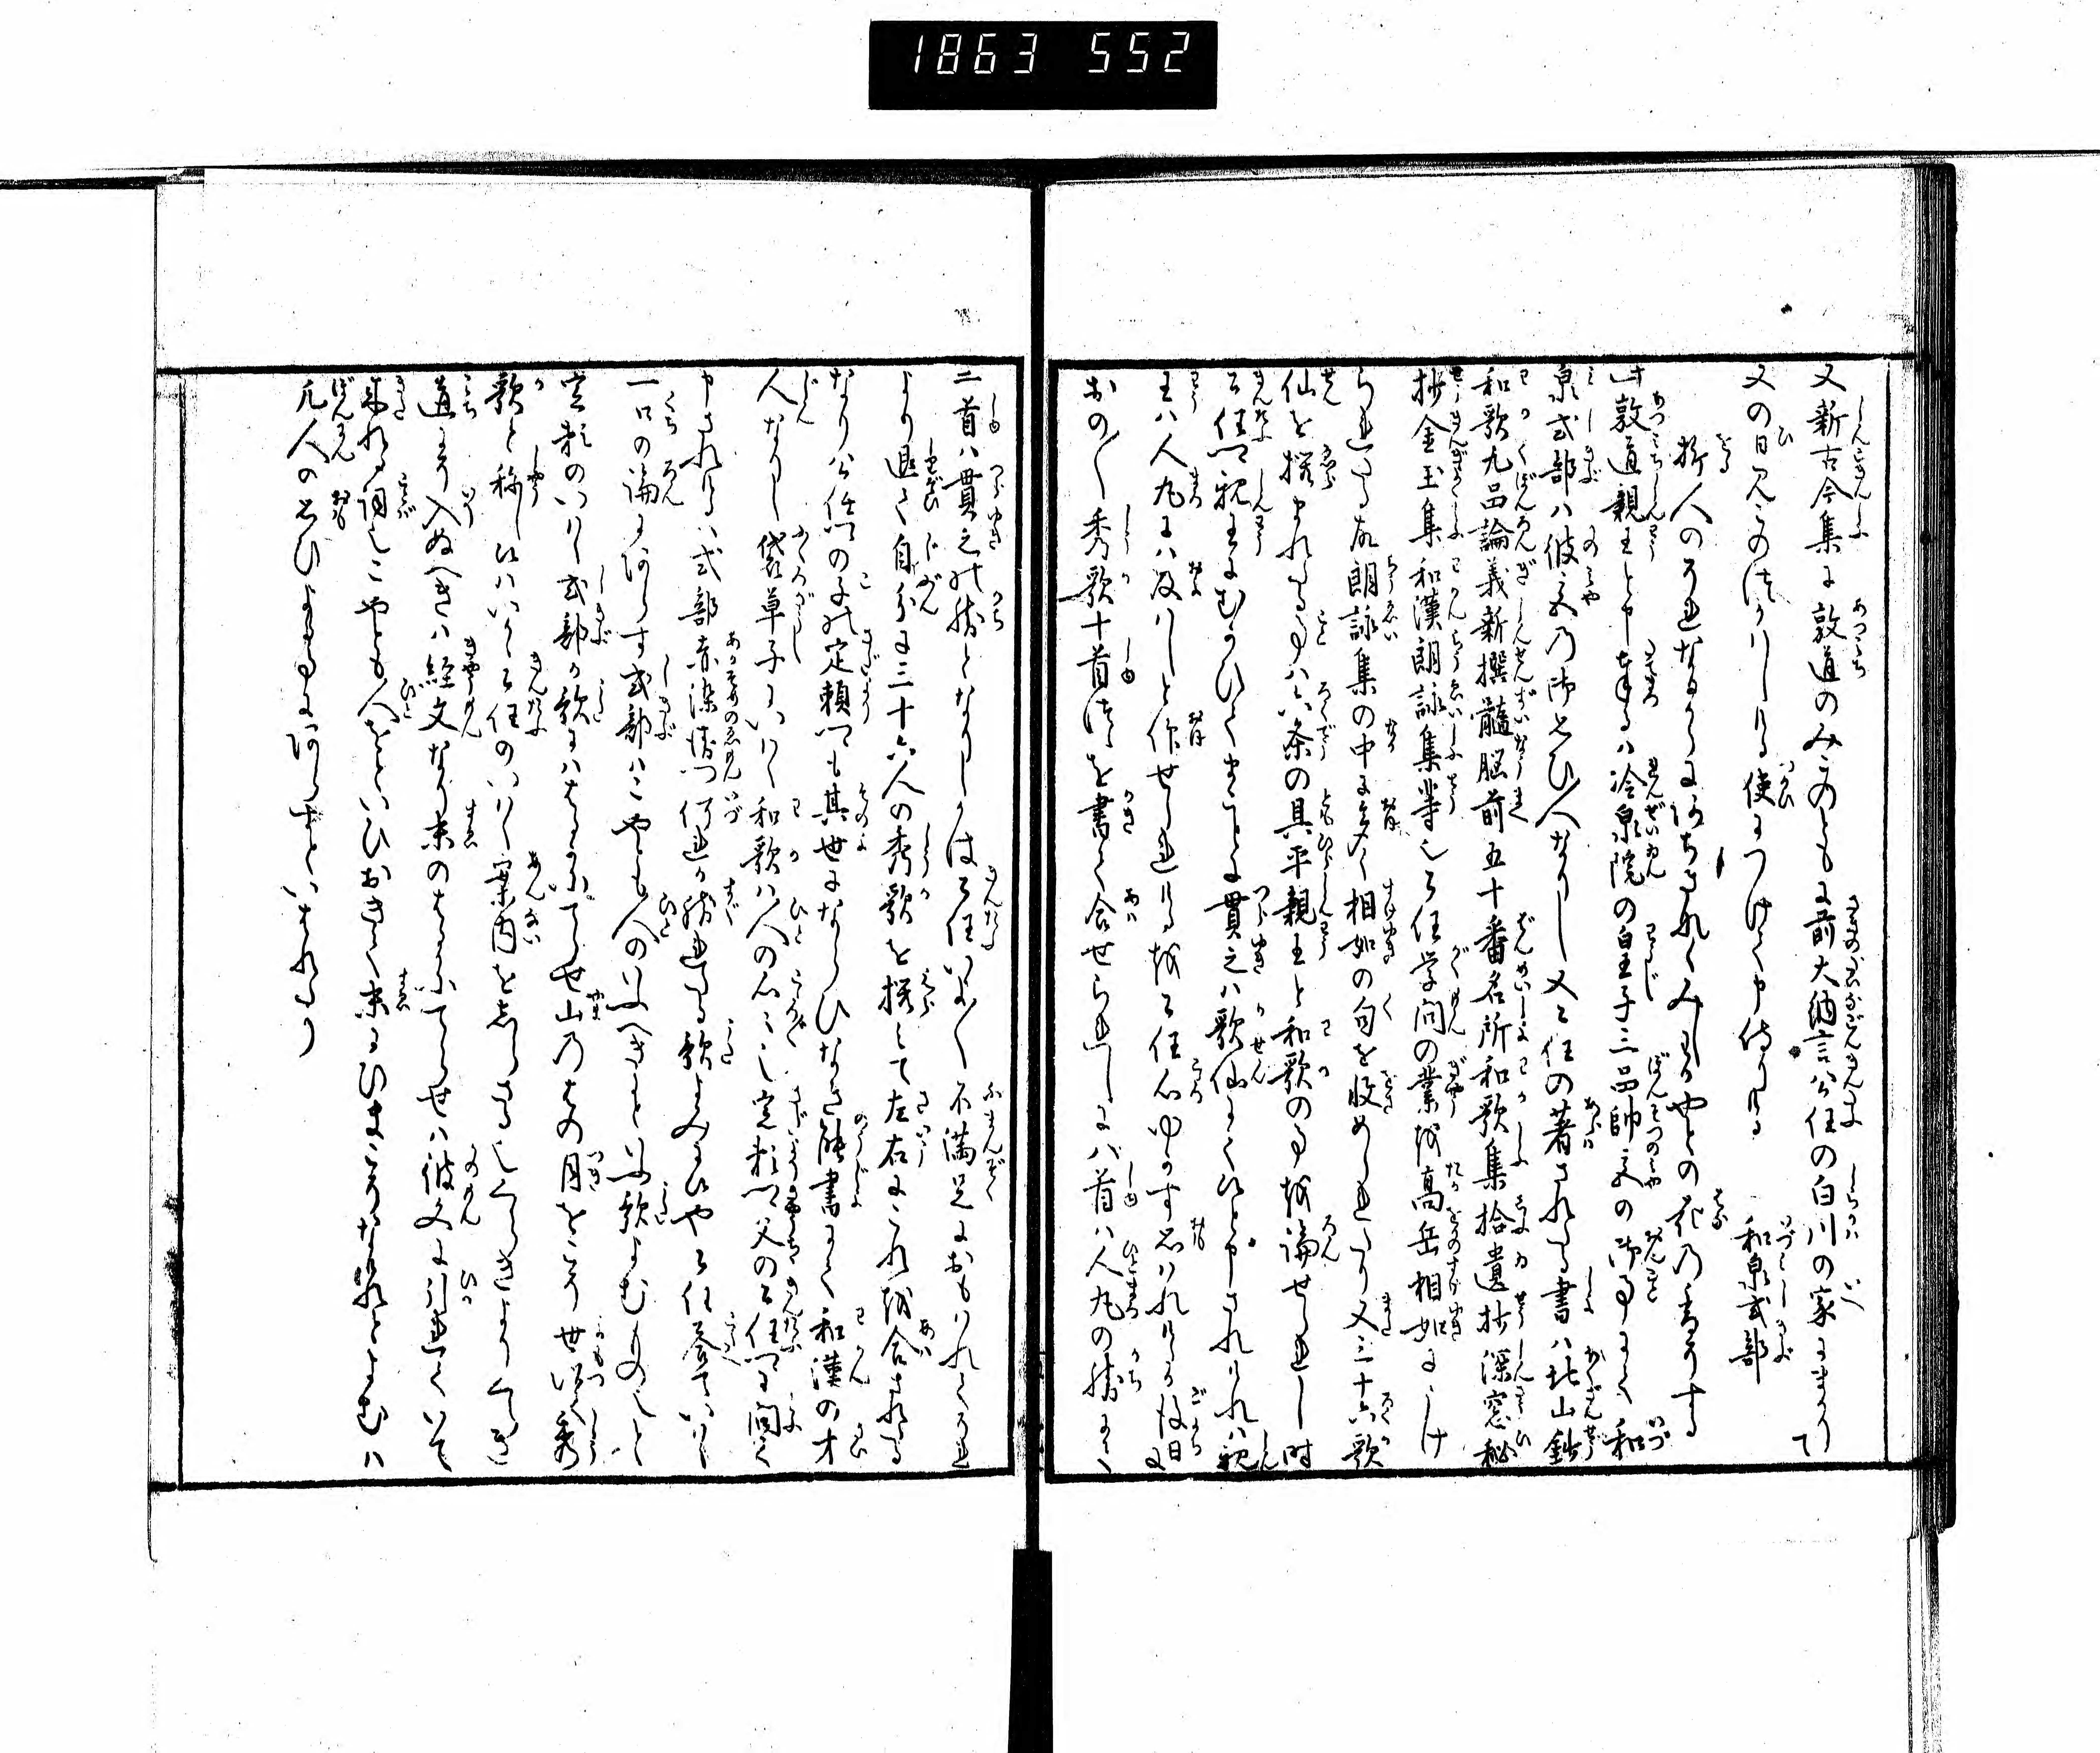 1863 552
又新古今集に敦道のみこのともに前大納言公任の白川の家にまかりて
又の日みこのつかはしける使につけて申侍りける　和泉式部
折人のそれなるからにあちきなくみし我やとの花の香そする
此敦道親王と申奉るハ冷泉院の皇子三品帥宮の御事にて和
泉式部ハ彼宮乃御思ひ人なりし又公任の著されたる書ハ北山鈔
和歌九品論義新撰髄脳前五十番名所和歌集拾遺抄深窓秘
抄金玉集和漢朗詠集等也公任学問の業は高岳相如にうけ
られたる故朗詠集の中に多く相如の句を收められたり又三十六歌
仙を撰まれたる事ハ六条の具平親王と和歌の事を論せられし時
公任卿親王にむかひてまことに貫之ハ歌仙にて候と申されけれハ親
王ハ人丸にハ及ハしと仰せられけるを公任心ゆかす思ハれけるか後日に
おの〱秀歌十首つゝを書て合せられしに八首ハ人丸の勝にて
二首ハ貫之の勝となりしかは公任いよ〱不満足におもハれてそれ
より退て自分に三十六人の秀歌を撰とて左右にこれを合されたる
なり公任卿の子の定頼卿も其世にならひなき能書にて和漢の才
人なりし袋草子にいはく和歌ハ人の心々也定頼卿父の公任卿に問て
申されけるハ式部赤染衛門何れか勝れたる歌よみに候や公任答ていはく
一口の論にあらす式部ハこやとも人のいふへきにと云歌よむもの也と
定頼のいはく式部か歌にハはるかにてらせ山乃はの月をこそ世以て秀
歌と称し候ハいかゝ公任のいはく案内をしらさる也くらきよりくらき
道にそ入ぬへきハ経文なり末のはるかにてらせハ彼文に引れていて
来れる詞也こやとも人をといひおきて末にひまこそなけれとよむハ
凡人の思ひよるへきにあらすとハいはれたり